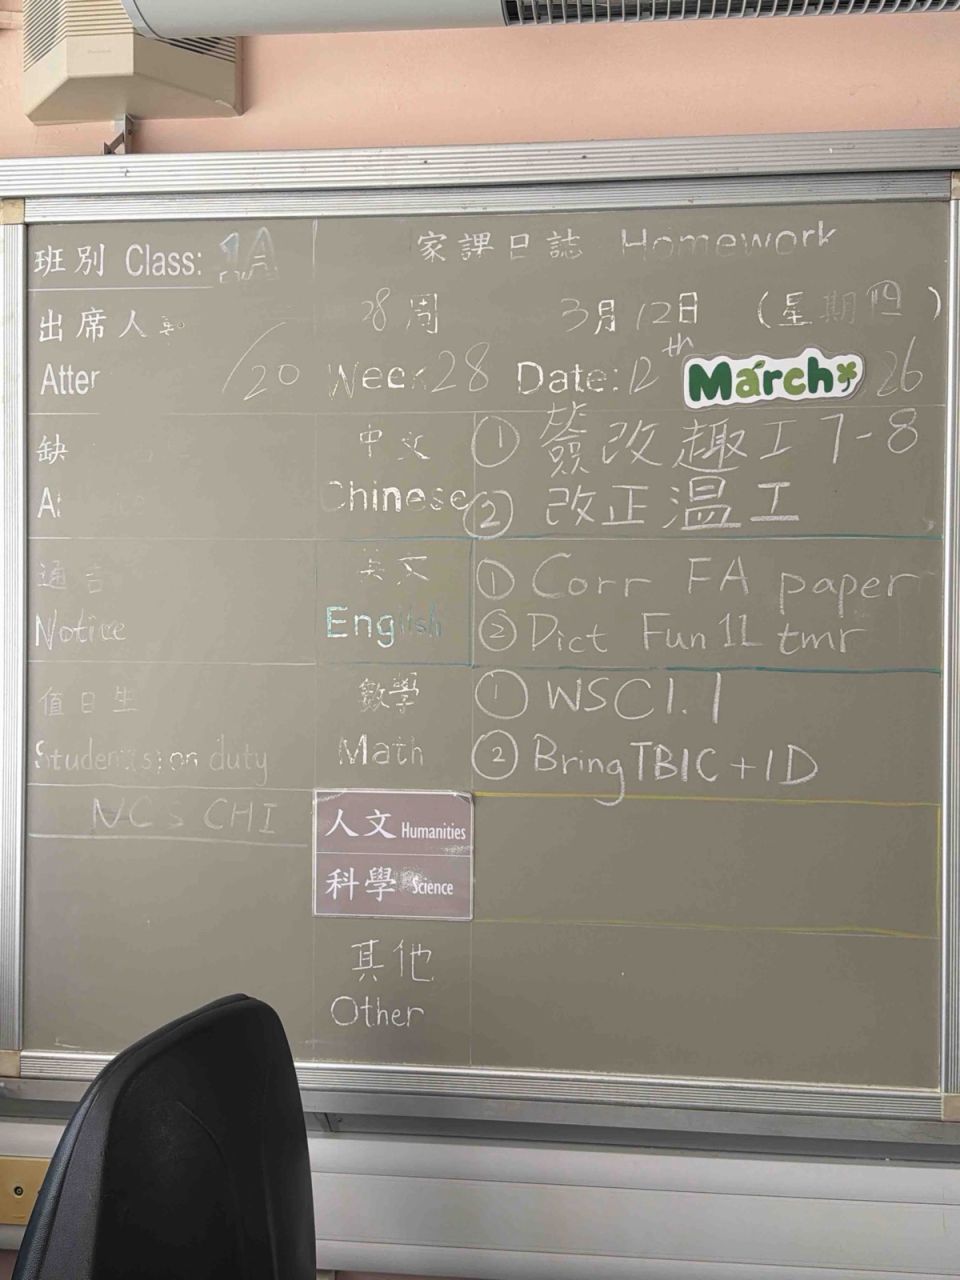 班別 Class: 1A
家課日誌 Homework
出席人
28周 3月12日 (星期四)
Atter /20
Week 28 Date: 12th March 26
缺
中文 ① 簽改趣工7-8
Chinese ② 改正溫工
通告
英文 ① Corr FA paper
Notice
English ② Dict Fun 11 tmr
值日生
數學 ① WSC1.1
Student(s) on duty
Math ② Bring TB1C+1D
NC > CHI
人文 Humanities
科學 Science
其他
Other